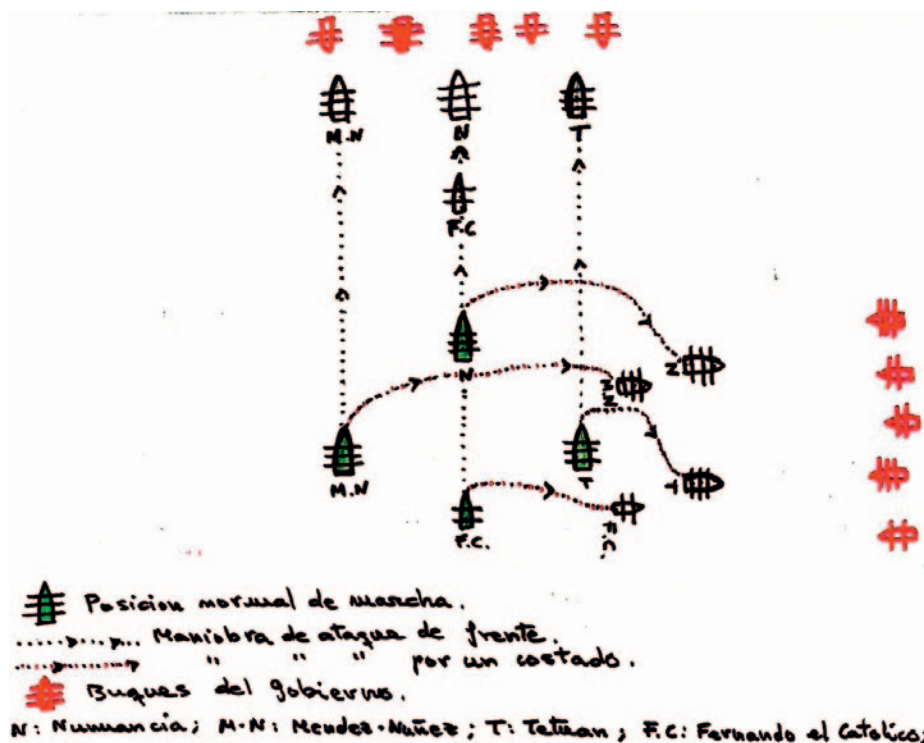 M.N N T
F.C
N N
M.N
M.N T T
F.C. F.C
Posicion normal de marcha.
Maniobra de ataque de frente.
" " " por un costado.
Buques del gobierno.
N: Numancia; M-N: Mendez-Nuñez; T: Tetuan; F.C: Fernando el Catolico,